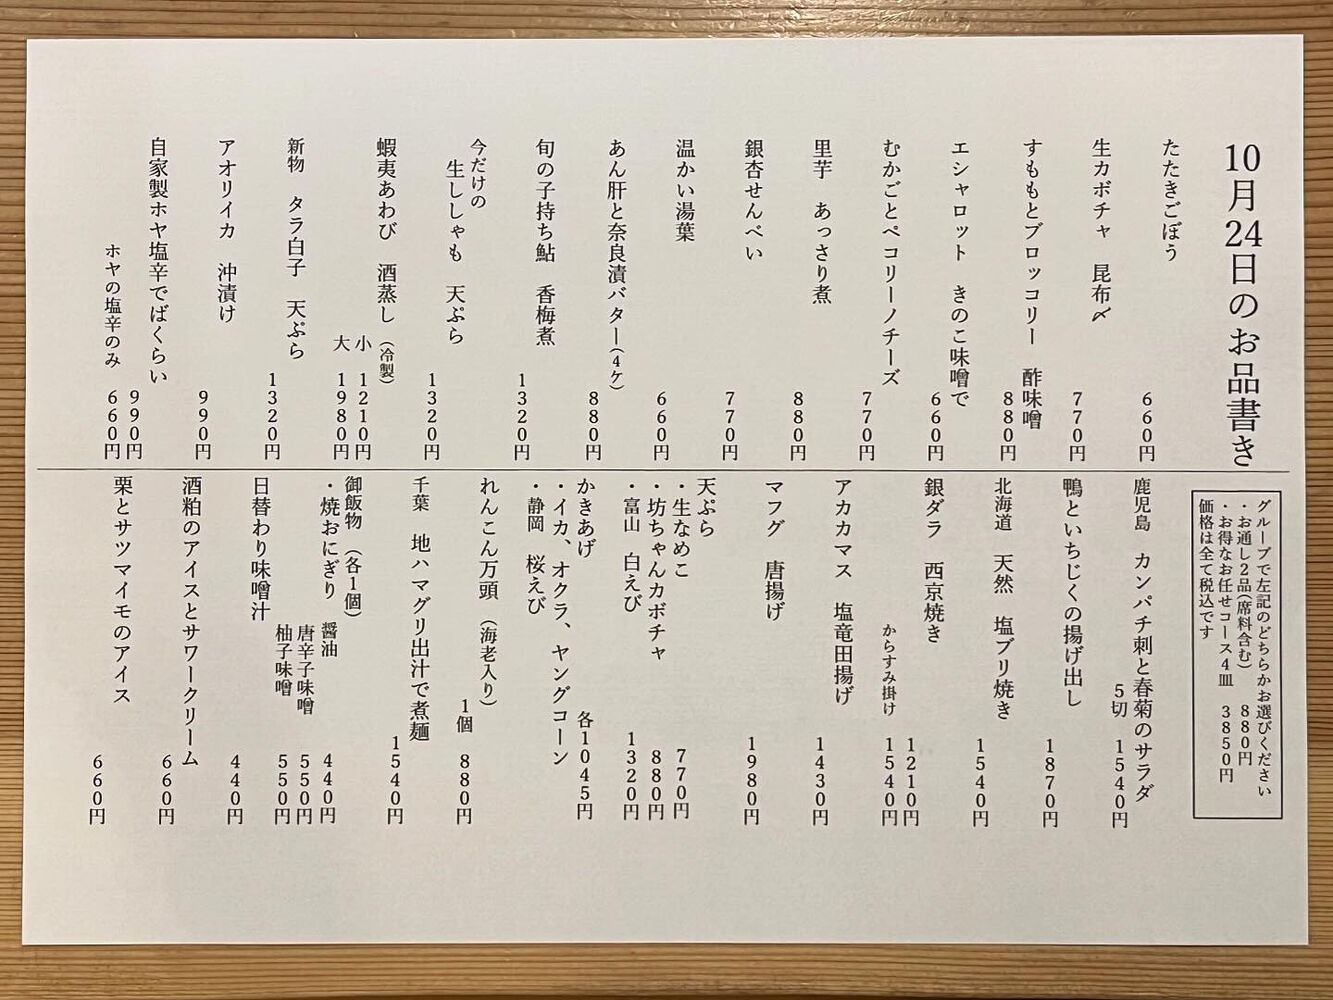 10月24日のお品書き
たたきごぼう 660円
生カボチャ 昆布〆 770円
すももとブロッコリー 酢味噌 880円
エシャロット きのこ味噌で 660円
むかごとペコリーノチーズ 770円
里芋 あっさり煮 880円
銀杏せんべい 770円
温かい湯葉 660円
あん肝と奈良漬バター(4ケ) 880円
旬の子持ち鮎 香梅煮 1320円
今だけの
生ししゃも 天ぷら 1320円
蝦夷あわび 酒蒸し(冷製)
小 1210円
大 1980円
新物 タラ白子 天ぷら 1320円
アオリイカ 沖漬け 990円
自家製ホヤ塩辛でばくらい 990円
ホヤの塩辛のみ 660円
グループで左記のどちらかお選びください
・お通し2品(席料含む) 880円
・お得なお任せコース4皿 3850円
価格は全て税込です
鹿児島 カンパチ刺と春菊のサラダ
5切 1540円
鴨といちじくの揚げ出し 1870円
北海道 天然 塩ブリ焼き 1540円
銀ダラ 西京焼き 1210円
からすみ掛け 1540円
アカカマス 塩竜田揚げ 1430円
マフグ 唐揚げ 1980円
天ぷら
・生なめこ 770円
・坊ちゃんカボチャ 880円
・富山 白えび 1320円
かきあげ 各1045円
・イカ、オクラ、ヤングコーン
・静岡 桜えび
れんこん万頭(海老入り)
1個 880円
千葉 地ハマグリ出汁で煮麺 1540円
御飯物(各1個)
・焼おにぎり 醤油 440円
唐辛子味噌 550円
柚子味噌 550円
日替わり味噌汁 440円
酒粕のアイスとサワークリーム 660円
栗とサツマイモのアイス 660円